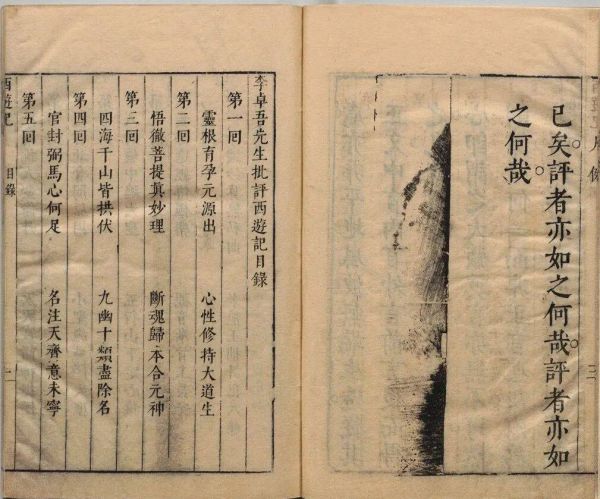 已矣評者亦如之何哉評者亦如
之何哉
李卓吾先生批評西遊記目錄
第一回
靈根育孕元源出 心性修持大道生
第二回
悟徹菩提真妙理 斷魂歸本合元神
第三回
四海千山皆拱伏 九幽十類盡除名
第四回
官封弼馬心何足 名注天齊意未寧
第五回
西遊記 目錄 一